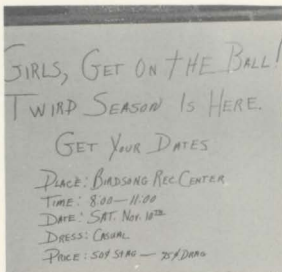 GIRLS, GET ON THE BALL!
TWIRP SEASON IS HERE.
GET YOUR DATES
PLACE: BIRDSONG REC. CENTER
TIME: 8:00—11:00
DATE: SAT. NOV. 10TH
DRESS: CASUAL
PRICE: 50¢ STAG — 75¢ DRAG